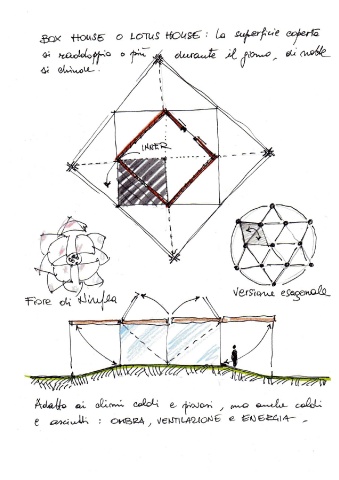 BOX HOUSE O LOTUS HOUSE: la superficie coperta
si raddoppia o più durante il giorno, di notte
si chiude.
INNER
Fiore di Ninfea
versione esagonale
Adatta ai climi caldi e piovosi, ma anche caldi
e asciutti: OMBRA, VENTILAZIONE e ENERGIA.